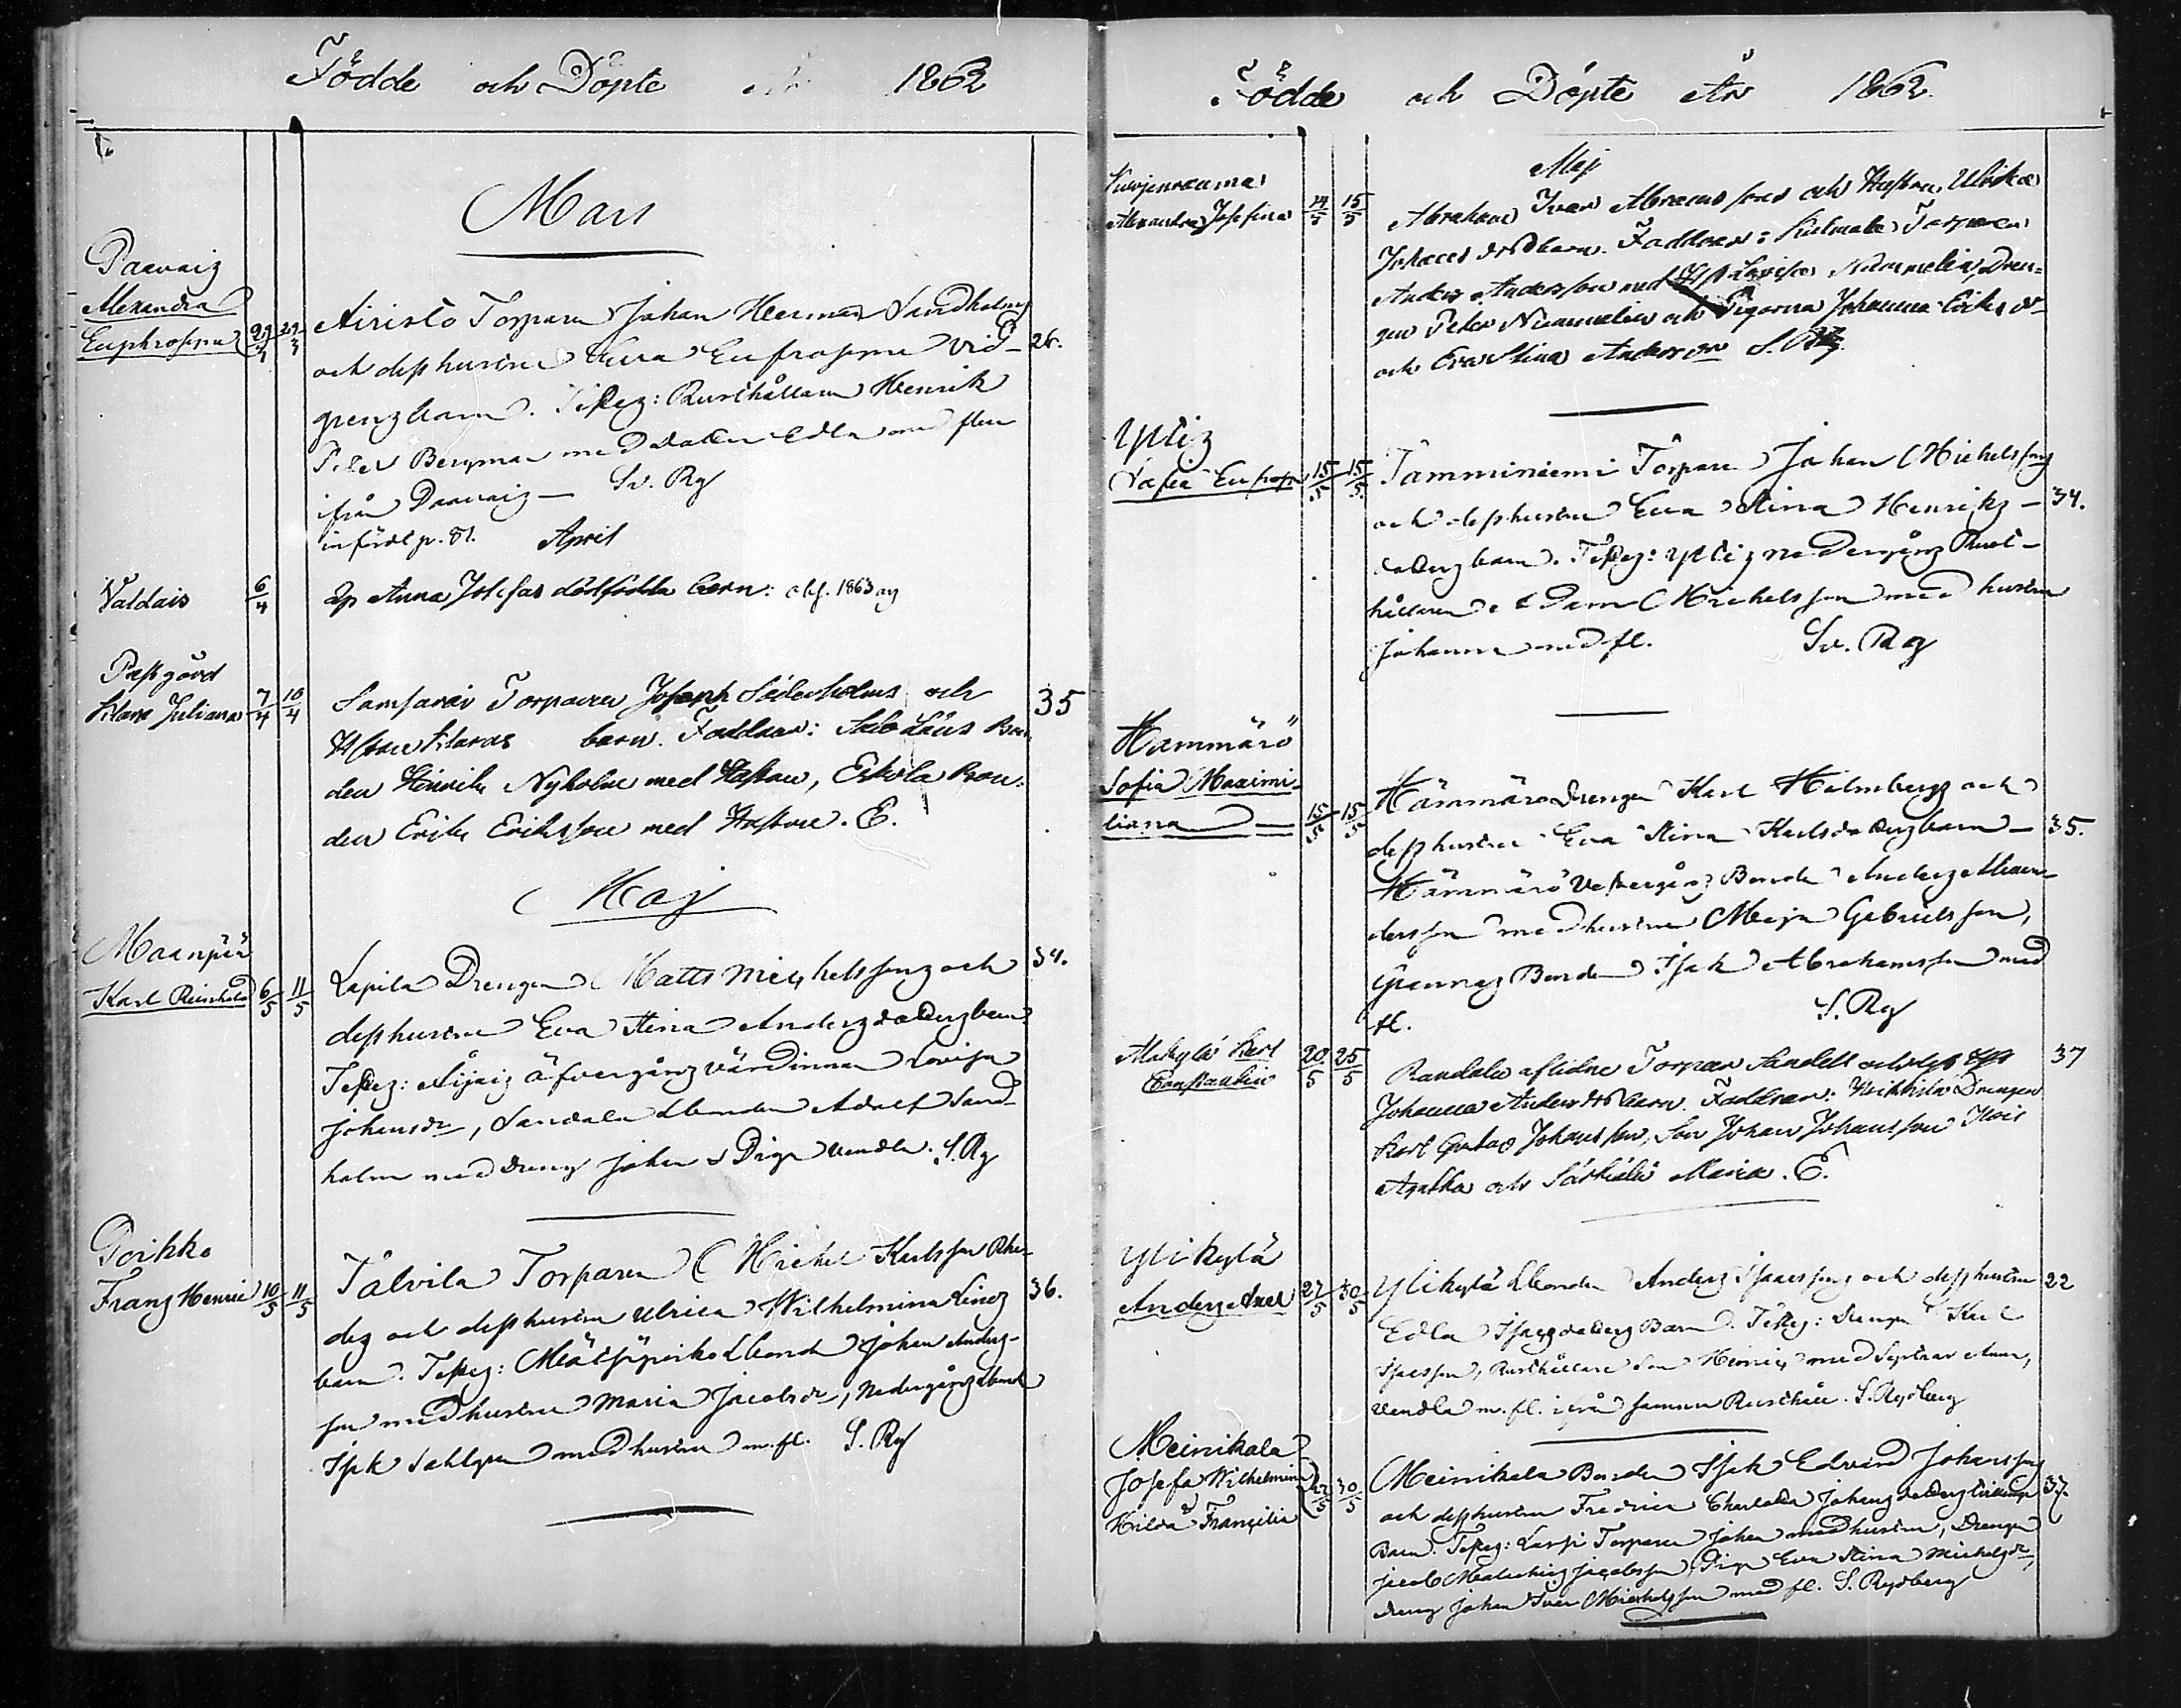 Födde och Döpte 1862
Mars
Paavaiz
Alexandra
Euphrosyna 29/3 29/3
Airisto Torparen Johan Herman Sandholms
och desshustru Eva Eufrosyne Vid- 26.
grenz barn. Testez: Rusthållaren Henrik
Peter Bergman med dotter Edla med flere
ifrån Paavaiz — Sv. Rg
infördt p. 81. April
Valdais 6/4 Ip Anna Josefas dödfödda barn: obf. 1863
Prestgård
Klara Juliana 7/4 10/4
Samsaari Torparen Joseph Söderholms och 35
Hustru Klaras barn. Faddrar:
den Henrik Nyholm med Hustru, Eskola Bon-
den Erik Eriksson med Hustru. E.
Maj
Maanpää
Karl Reinhold 6/5 11/5
Lapila Drengen Matts Michelssonz och 34.
desshustru Eva Stina Andersdotterz barn.
Testez: Äijäiz öfvergångz värdinnan Lovisa
Johansdr, Sandala Lbonden Adolf Sand-
holm med dreng Johan & Piga Vendla. S. Rg
Poikko
Franz Henric 10/5 11/5
Talvila Torparen Michel Karlsson Rhe- 36.
dez och desshustru Ulrica Wilhelmina Lindz
barn. Testez: Lbonde Johan Anders-
son med hustru Maria Jacobsdr, Nedergårdz Lbonde
Isak Sahlgren med hustru m. fl. S. Rg
Födde och Döpte År 1862.
Maj
Kurjenrauma
Alexandra Josefina 14/5 15/5
Abraham Ivar Abrams sons och Hustru Ulrika
Johans dr barn. Faddrar: Kulmala Torparen
Anders Andersson med Hst Lovisa Nummelin, Dren-
gen Peter Nummelin och Pigorna Johanna Eriks dr
och Eva Stina Anders dr S. Rg.
Yltiz
Sofia Eufros 15/5 15/5
Tamminiemi Torparen Johan Michelssonz
och desshustru Eva Stina Henriks- 34.
dotterz barn. Testez: Yltiz nedergångz Rust-
hållaren Adam Michelsson med hustru
Johanna med fl. Sv. Rg
Hammärö
Sofia Maximi-
liana 15/5 15/5
Hämmärö Drengen Karl Holmbergz och
desshustru Eva Stina Karlsdotterz barn — 35.
Hämmärö Vestergårdz Bonden Anders Alexan-
dersson med hustru Maja Gabrielsson,
Grannaz Bonden Isak Abrahamsson med
fl. S. Rg
Makylä Karl
Constantin 20/5 25/5
Randala aflidne Torparen Sandell och dess Hst 37
Johanna Anders dr barn. Faddrar: Drengen
Karl Gustaf Johansson, Son Johan Johansson
Agatha och Särkilä Maria. E.
Ylikylä
Anders Axel 27/5 30/5
Ylikylä Lbonden Anders Isacssonz och desshustru 22
Edla Isacsdotterz Barn. Testez: Drengen Karl
Isacsson, Rusthållare Son Henric med Systrar Anna,
Vendla m. fl. ifrån samma Rusthåll. S. Rydberg
Meinikala
Josefa Wilhelmina
Hilda Francilia 22/5 30/5
Meinikala Bonden Isak Edvard Johanssonz
och desshustru Fredrica Charlotta Johansdotterz tvillinge 37.
Barn. Testez: Lassi Torparen Johan med hustru, Drengen
Jacob Jacobsson, Piga Eva Stina Michelsdr,
dreng Johan Ivar Michelsson med fl. S. Rydberg